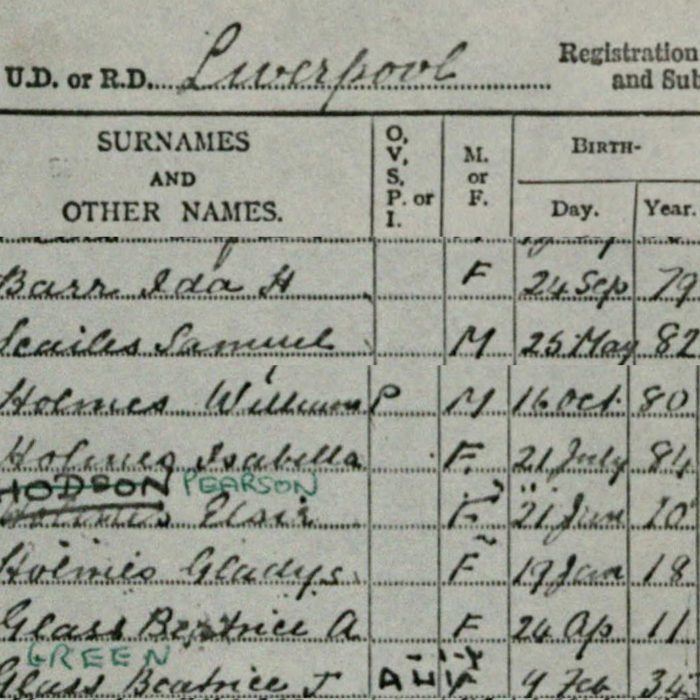 U.D. or R.D. Liverpool Registration
and Sub
SURNAMES AND OTHER NAMES. O, V, S, P. or I. M. or F. BIRTH-
Day. Year.
Barr Ida H F 24 Sep 79
Scailes Samuel M 25 May 82
Holmes William P M 16 Oct 80
Holmes Isabella F. 21 July 84
HODSON PEARSON
Holmes F 21 10
Holmes Gladys. F 19 Jan 18
Glass Beatrice A F 24 Ap 11
GREEN
Glass Beatrice J F 9 Feb 34